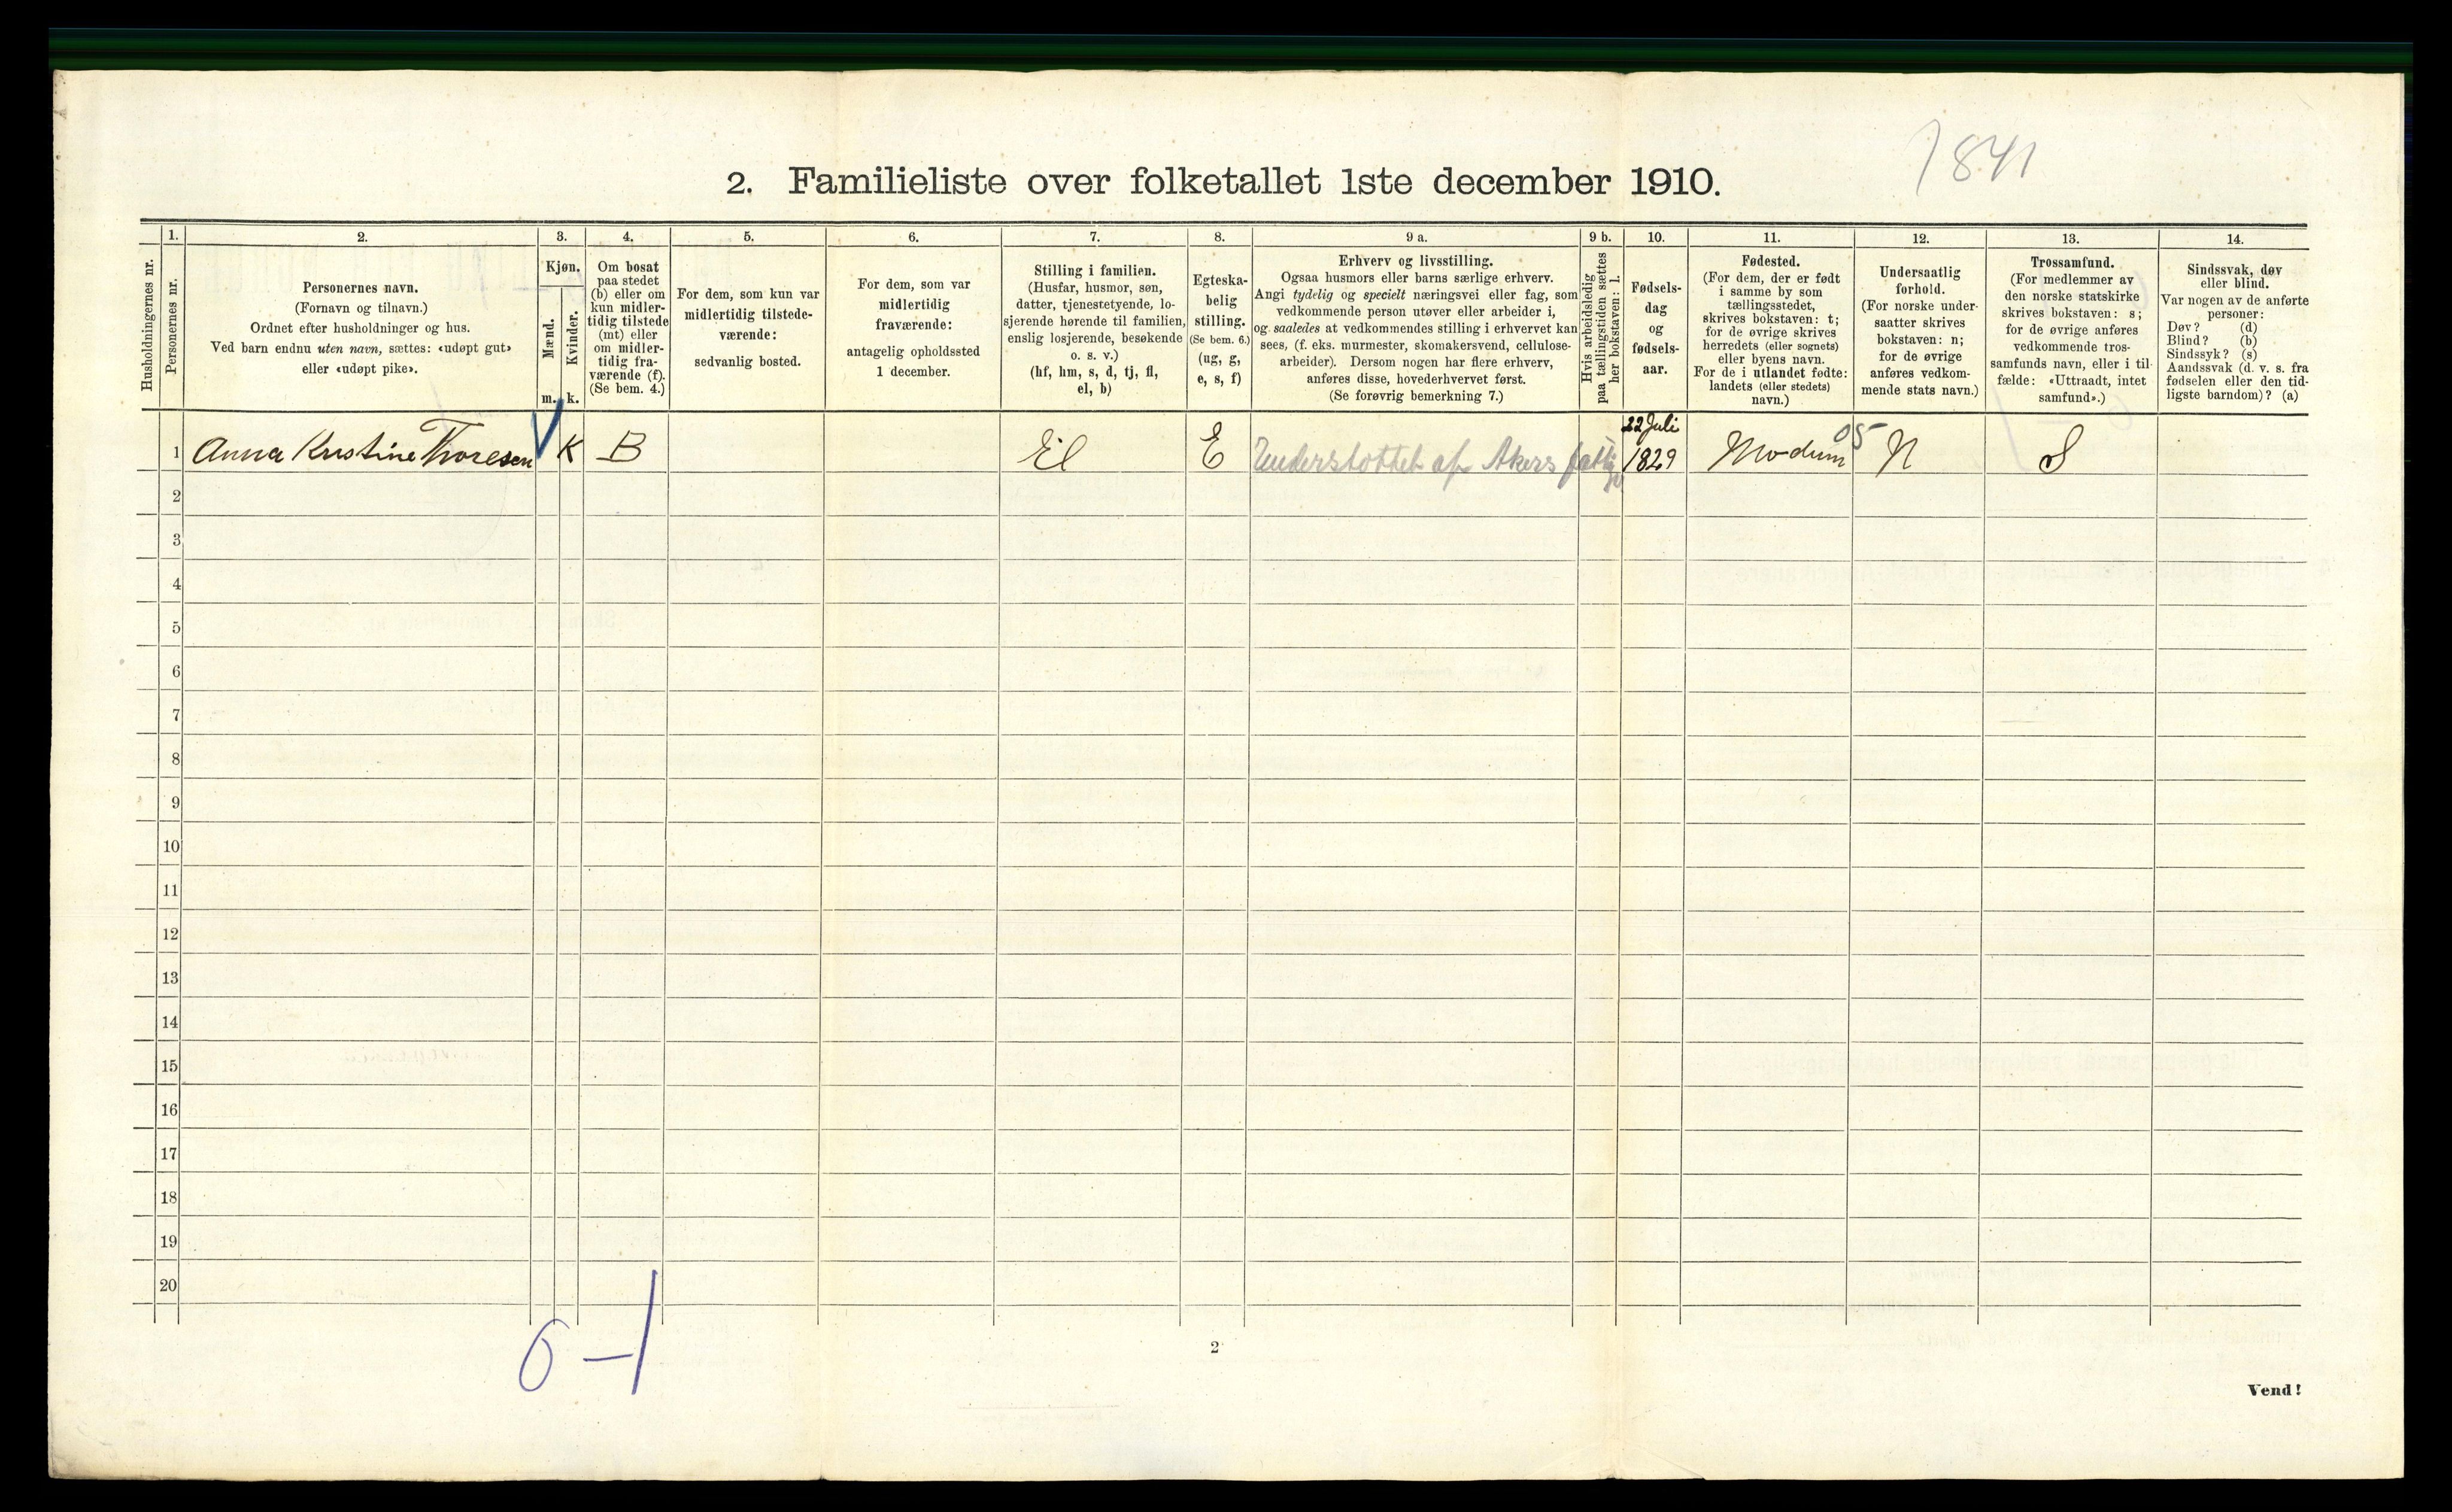 7841
2. Familieliste over folketallet 1ste december 1910.
1. 2. 3. 4. 5. 6. 7. 8. 9 a. 9 b. 10. 11. 12. 13. 14.
Husholdningernes nr.
Personernes nr.
Personernes navn.
(Fornavn og tilnavn.)
Ordnet efter husholdninger og hus.
Ved barn endnu uten navn, sættes: «udøpt gut»
eller «udøpt pike».
Kjøn.
Mænd.
Kvinder.
m. k.
Om bosat
paa stedet
(b) eller om
kun midler-
tidig tilstede
(mt) eller
om midler-
tidig fra-
værende (f).
(Se bem. 4.)
For dem, som kun var
midlertidig tilstede-
værende:
sedvanlig bosted.
For dem, som var
midlertidig
fraværende:
antagelig opholdssted
1 december.
Stilling i familien.
(Husfar, husmor, søn,
datter, tjenestetyende, lo-
sjerende hørende til familien,
enslig losjerende, besøkende
o. s. v.)
(hf, hm, s, d, tj, fl,
el, b)
Egteska-
belig
stilling.
(Se bem. 6.)
(ug, g,
e, s, f)
Erhverv og livsstilling.
Ogsaa husmors eller barns særlige erhverv.
Angi tydelig og specielt næringsvei eller fag, som
vedkommende person utøver eller arbeider i,
og saaledes at vedkommendes stilling i erhvervet kan
sees, (f. eks. murmester, skomakersvend, cellulose-
arbeider). Dersom nogen har flere erhverv,
anføres disse, hovederhvervet først.
(Se forøvrig bemerkning 7.)
Hvis arbeidsledig
paa tællingstiden sættes
her bokstaven: l.
Fødsels-
dag
og
fødsels-
aar.
Fødested.
(For dem, der er født
i samme by som
tællingsstedet,
skrives bokstaven: t;
for de øvrige skrives
herredets (eller sognets)
eller byens navn.
For de i utlandet fødte:
landets (eller stedets)
navn.)
Undersaatlig
forhold.
(For norske under-
saatter skrives
bokstaven: n;
for de øvrige
anføres vedkom-
mende stats navn.)
Trossamfund.
(For medlemmer av
den norske statskirke
skrives bokstaven: s;
for de øvrige anføres
vedkommende tros-
samfunds navn, eller i til-
fælde: «Uttraadt, intet
samfund».)
Sindssvak, døv
eller blind.
Var nogen av de anførte
personer:
Døv? (d)
Blind? (b)
Sindssyk? (s)
Aandssvak (d. v. s. fra
fødselen eller den tid-
ligste barndom)? (a)
1 Anna Kristine Thoresen K B El E Understottet af Akers 22 Juli 1829 Modum 05 N S
2
3
4
5
6
7
8
9
10
11
12
13
14
15
16
17
18
19
20
0-1
2
Vend!